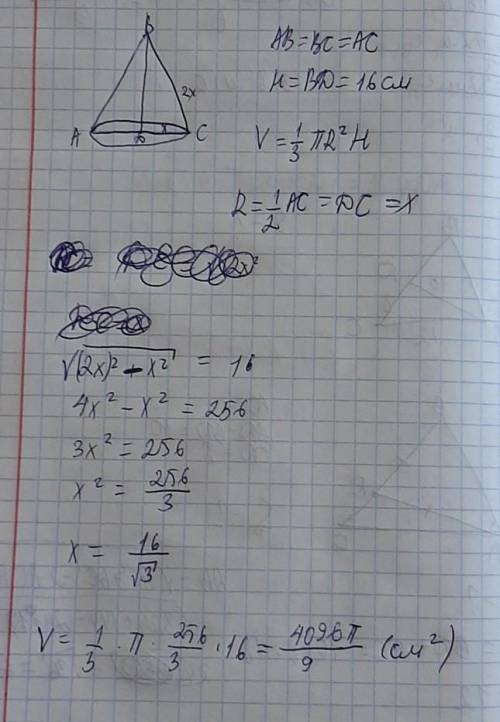 B
AB=BC=AC
H=BD=16см
2x
A
x
C
D
V=1/3 πR²H
R=1/2 AC=DC=x
√((2x)²-x²) = 16
4x²-x²=256
3x²=256
x²=256/3
x=16/√3
V=1/3·π·256/3·16=4096π/9 (см²)